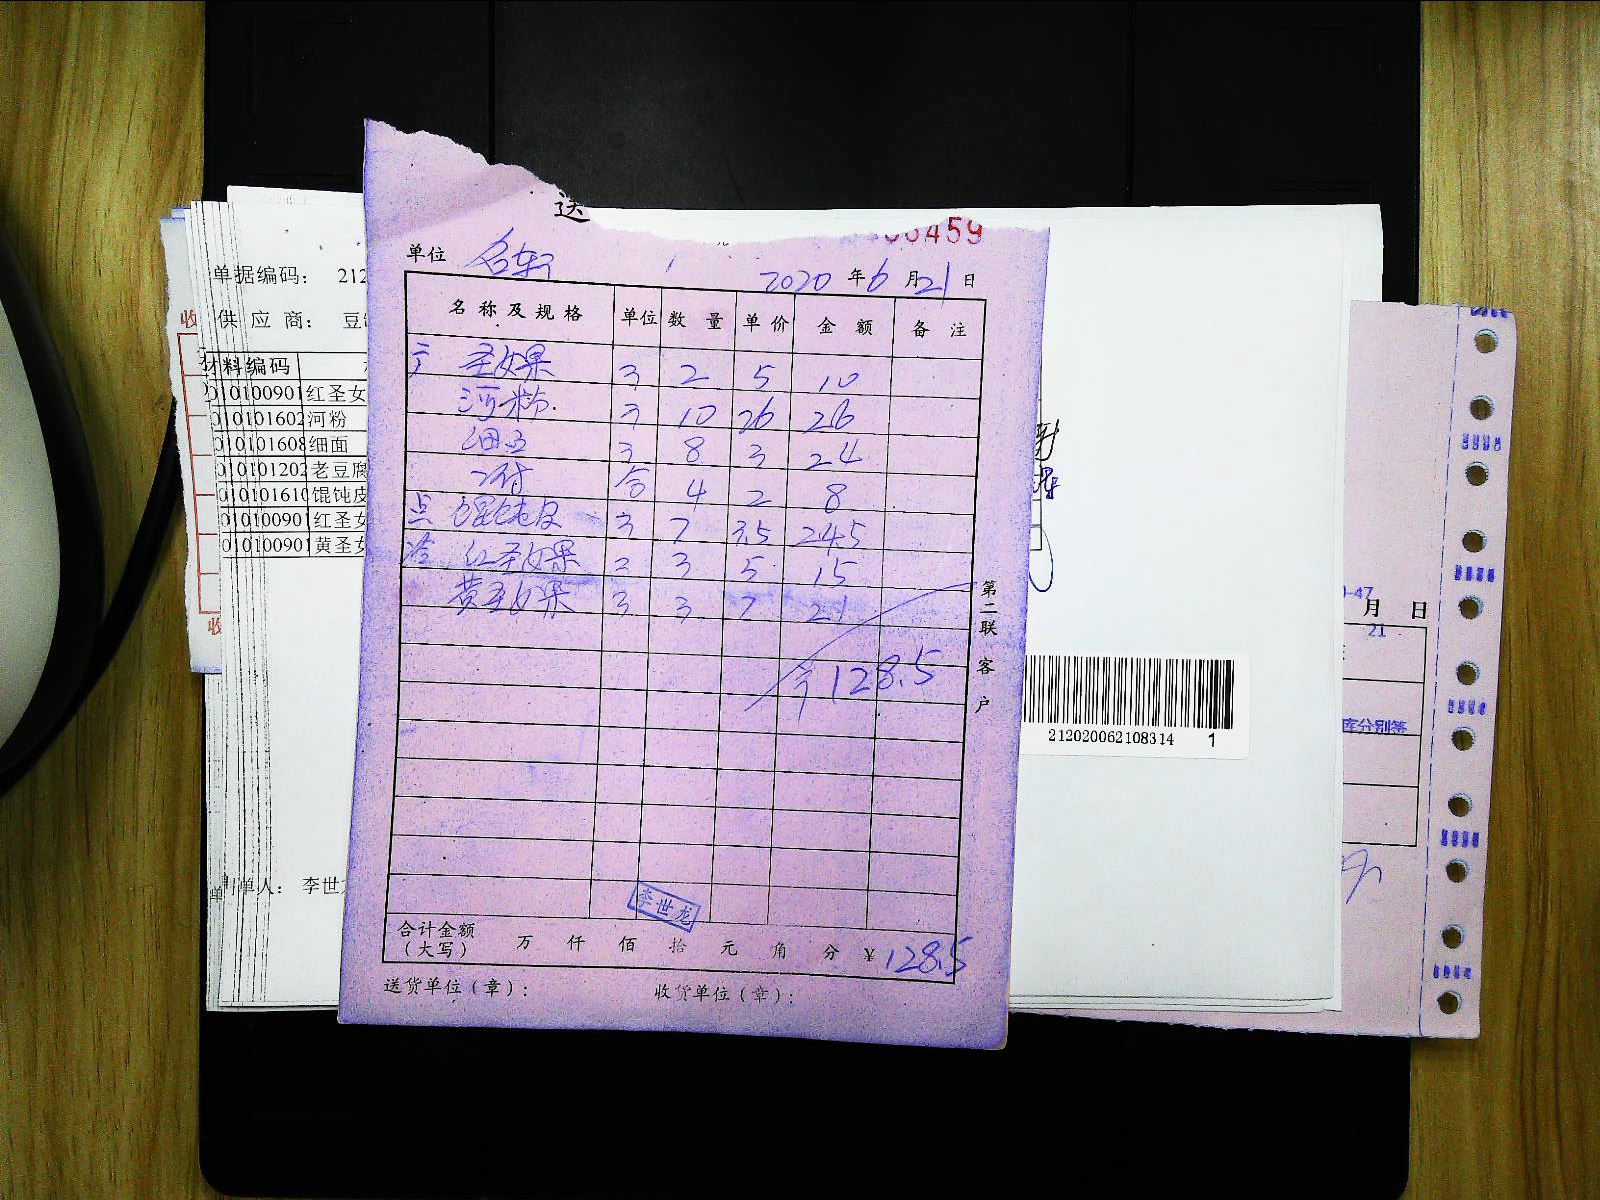 送
459
单位 2020 年 6 月 21 日
名称及规格 单位 数量 单价 金额 备注
圣女果 3 2 5 10
河粉 3 10 26 26
细面 3 8 3 24
4 2 8
点 馄饨皮 3 7 3.5 24.5
冷 红圣女果 3 3 5 15
黄圣女果 3 3 7 21
128.5
第二联 客户
李世龙
合计金额(大写) 万 仟 佰 拾 元 角 分 ¥128.5
送货单位(章): 收货单位(章):
单据编码: 212
供应商: 豆
材料编码
010100901 红圣女
010101602 河粉
010101608 细面
010101202 老豆腐
010101610 馄饨皮
010100901 红圣女
010100901 黄圣女
制单人: 李世
收
收
212020062108314 1
-47
月 日
21
库分别签